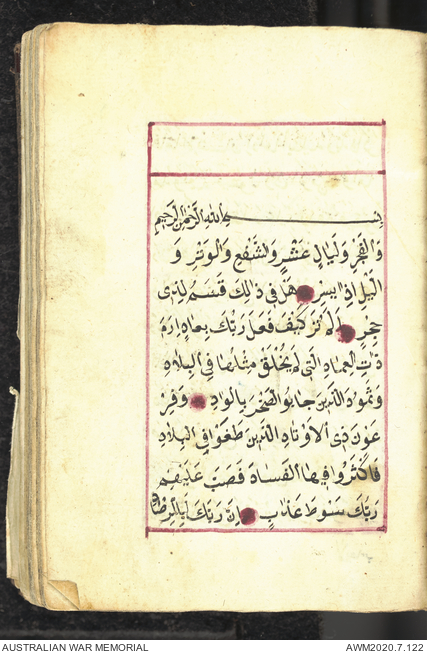 بسم الله الرحمن الرحيم
وَالْفَجْرِ وَلَيَالٍ عَشْرٍ وَالشَّفْعِ وَالْوَتْرِ وَ
الَّيْلِ اِذَا يَسْرِ هَلْ فِى ذَالِكَ قَسَمٌ لِذِى
حِجْرٍ اَلَمْ تَرَ كَيْفَ فَعَلَ رَبُّكَ بِعَادٍ اِرَمَ
ذَاتِ الْعِمَادِ الَّتِى لَمْ يُخْلَقْ مِثْلُهَا فِى الْبِلَادِ
وَثَمُودَ الَّذِينَ جَابُوا الصَّخْرَ بِالْوَادِ وَفِرْ
عَوْنَ ذِى الْاَوْتَادِ الَّذِينَ طَغَوْا فِى الْبِلَادِ
فَاَكْثَرُوا فِيهَا الْفَسَادَ فَصَبَّ عَلَيْهِمْ
رَبُّكَ سَوْطَ عَذَابٍ اِنَّ رَبَّكَ لَبِالْمِرْصَادِ
AUSTRALIAN WAR MEMORIAL
AWM2020.7.122